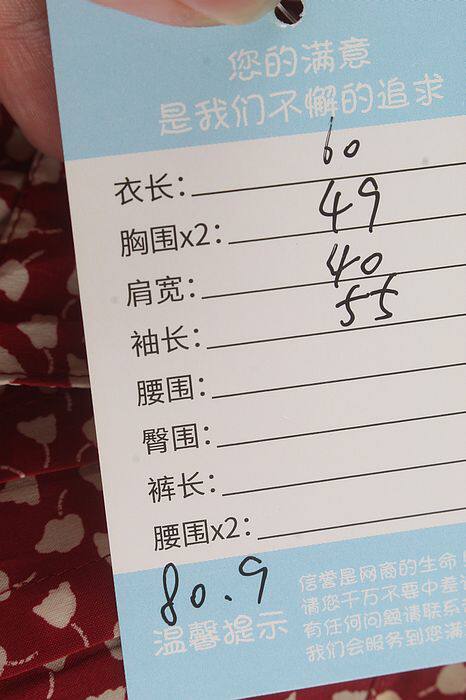 您的满意
是我们不懈的追求
衣长: 60
胸围x2: 49
肩宽: 40
袖长: 55
腰围:
臀围:
裤长:
腰围x2:
80.9
温馨提示
信誉是网商的生命!
请您千万不要中差
有任何问题请联系
我们会服务到您满